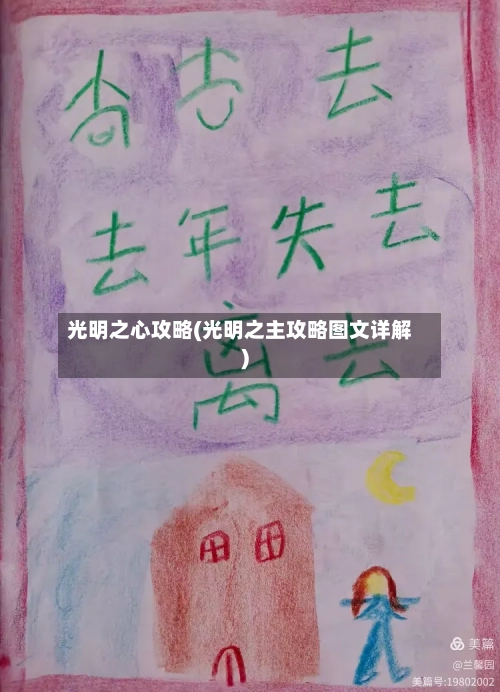 去
去年失去
光明之心攻略(光明之主攻略图文详解
)
离去
美篇
@兰馨园
美篇号:19802002